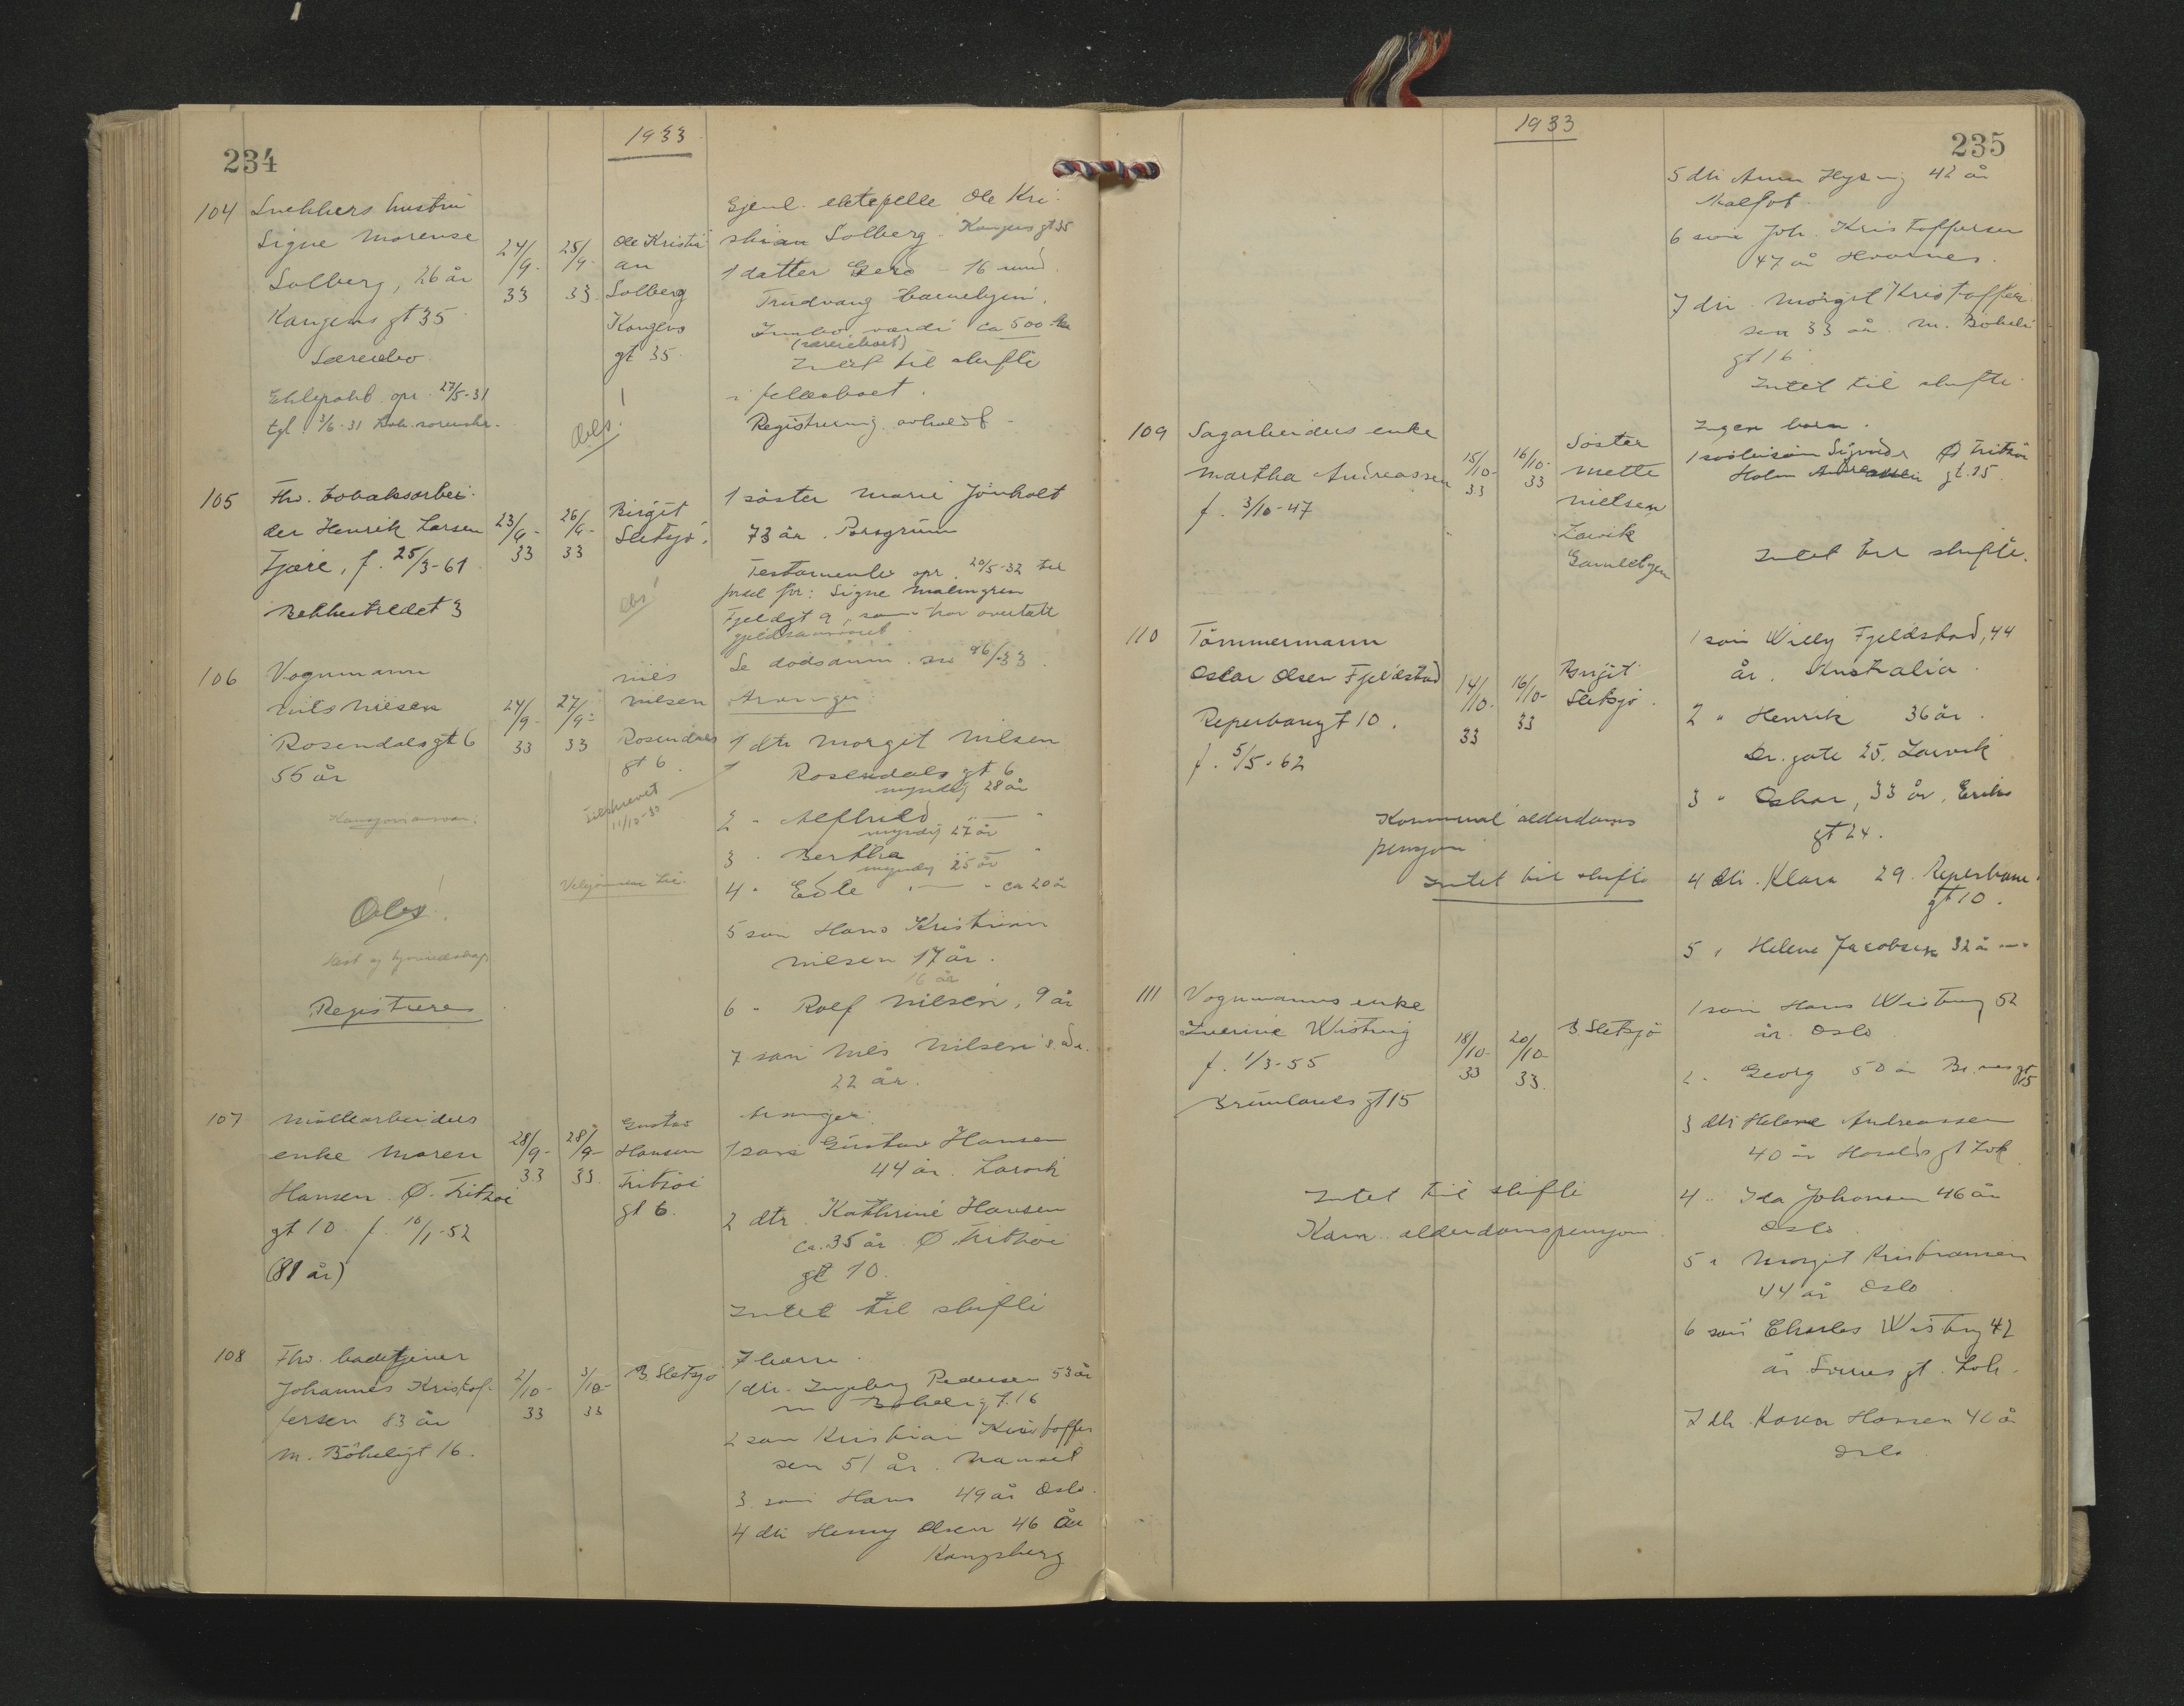 1933
234
104 Snekkers hustru
Signe Marense
Solberg, 26 år
Kongens gt 35
Særeiebo.
Ektepakt opr. 27/5-31
tgl. 3/6-31
24/9-33
25/9-33
Ole Kristi
an
Solberg
Kongens
gt 35.
Obs!
Gjenl. ektefelle Ole Kri-
stian Solberg. Kongens gt 35
1 datter Gerd - 16 mnd
Trudvang barnehjem.
Innbo verdi ca 500 kr
(særeieboet)
Intet til skifte
i fellesboet.
Registrering avholdt -
105 Fhv. tobaksarbei-
der Henrik Larsen
Tjære, f. 25/3-61
Bekkestredet 3
23/9-33
26/9-33
Birgit
Sletsjø.
Obs!
1 søster Marie Jönholt
73 år. Porsgrunn
Testamente opr. 20/5-32 til
fordel for: Signe Malmgren
Fjeldgt 9, som har overtatt
gjeldsansvaret
Se dødsanm. no 96/33.
106 Vognmann
Nils Nilsen
Rosendalsgt 6
55 år
24/9-33
27/9-33
Nils
Nilsen
Rosendals
gt 6.
Tilskrevet
11/10-33
Obs!
Registreres
Arvinger:
1 dtr Margit Nilsen
Rosendals gt 6
myndig 28 år
2 " Alfhild
myndig 27 år
3 " Bertha
myndig 25 år
4 " Edle - ca 20 år
5 søn Hans Kristian
Nilsen 17 år.
16 år
6 " Rolf Nilsen, 9 år
7 søn Nils Nilsen s. st.
22 år.
107 Møllearbeiders
enke Maren
Hansen Ø. Fritzøe
gt 10. f. 10/1-52
(81 år)
28/9-33
28/9-33
Gustav
Hansen
Fritzøe
gt 6.
Arvinger:
1 søn Gustav Hansen
44 år. Larvik
2 dtr. Kathrine Hansen
ca. 35 år Ø. Fritzøe
gt 10.
Intet til skifte
108 Fhv. badetjener
Johannes Kristof-
fersen 83 år
m. Bøkeligt 16.
2/10-33
3/10-33
B. Sletsjø
7 barn.
1 dtr. Ingeborg Pedersen 53 år
m Bøkeligt. 16
2 søn Kristian Kristoffer
sen 51 år. Nanset
3 søn Hans 49 år Oslo.
4 dtr Henny Olsen 46 år
Kongsberg
1933
235
5 dtr Anna 42 år
6 søn Joh. Kristoffersen
47 år
7 dtr. Margit Kristoffer-
sen 33 år. m. Bøkeli
gt 16.
Intet til skifte
109 Sagarbeiders enke
Martha Andreassen
f. 3/10-47
15/10-33
16/10-33
Søster
Mette
Nielsen
Larvik
Gamlehjem
Ingen barn.
1 søstersønn Sigurd Ø Fritzøe
Holm Andreassen gt. 25.
Intet til skifte.
110 Tømmermann
Oskar Olsen Fjeldstad
Reperbanegt 10.
f. 5/5-62
14/10-33
16/10-33
Birgit
Sletsjø.
Kommunal alderdoms
pensjon
Intet til skifte
1 søn Willy Fjeldstad, 44
år. Australia
2 " Henrik 36 år.
Dr. gate 25. Larvik
3 " Oskar, 33 år, Eriks
gt 24.
4 dtr. Klara 29. Reperbane
gt 10.
5 " Helene Jacobsen 32 år
111 Vognmanns enke
Inerine Wisting
f. 1/3-55
Brunlanes gt 15
18/10-33
20/10-33.
B Sletsjø
Intet til skifte
Kom. alderdomspensjon.
1 søn Hans Wisting 52
år. Oslo
2 " Georg 50 år Br.nes gt 15
3 dtr Helene Andreassen
40 år Haralds gt
4 " Ida Johansen 46 år
Oslo
5 " Margit Kristiansen
44 år Oslo
6 søn Charles Wisting 42
år
7 dtr. Hansen 42 år
Oslo